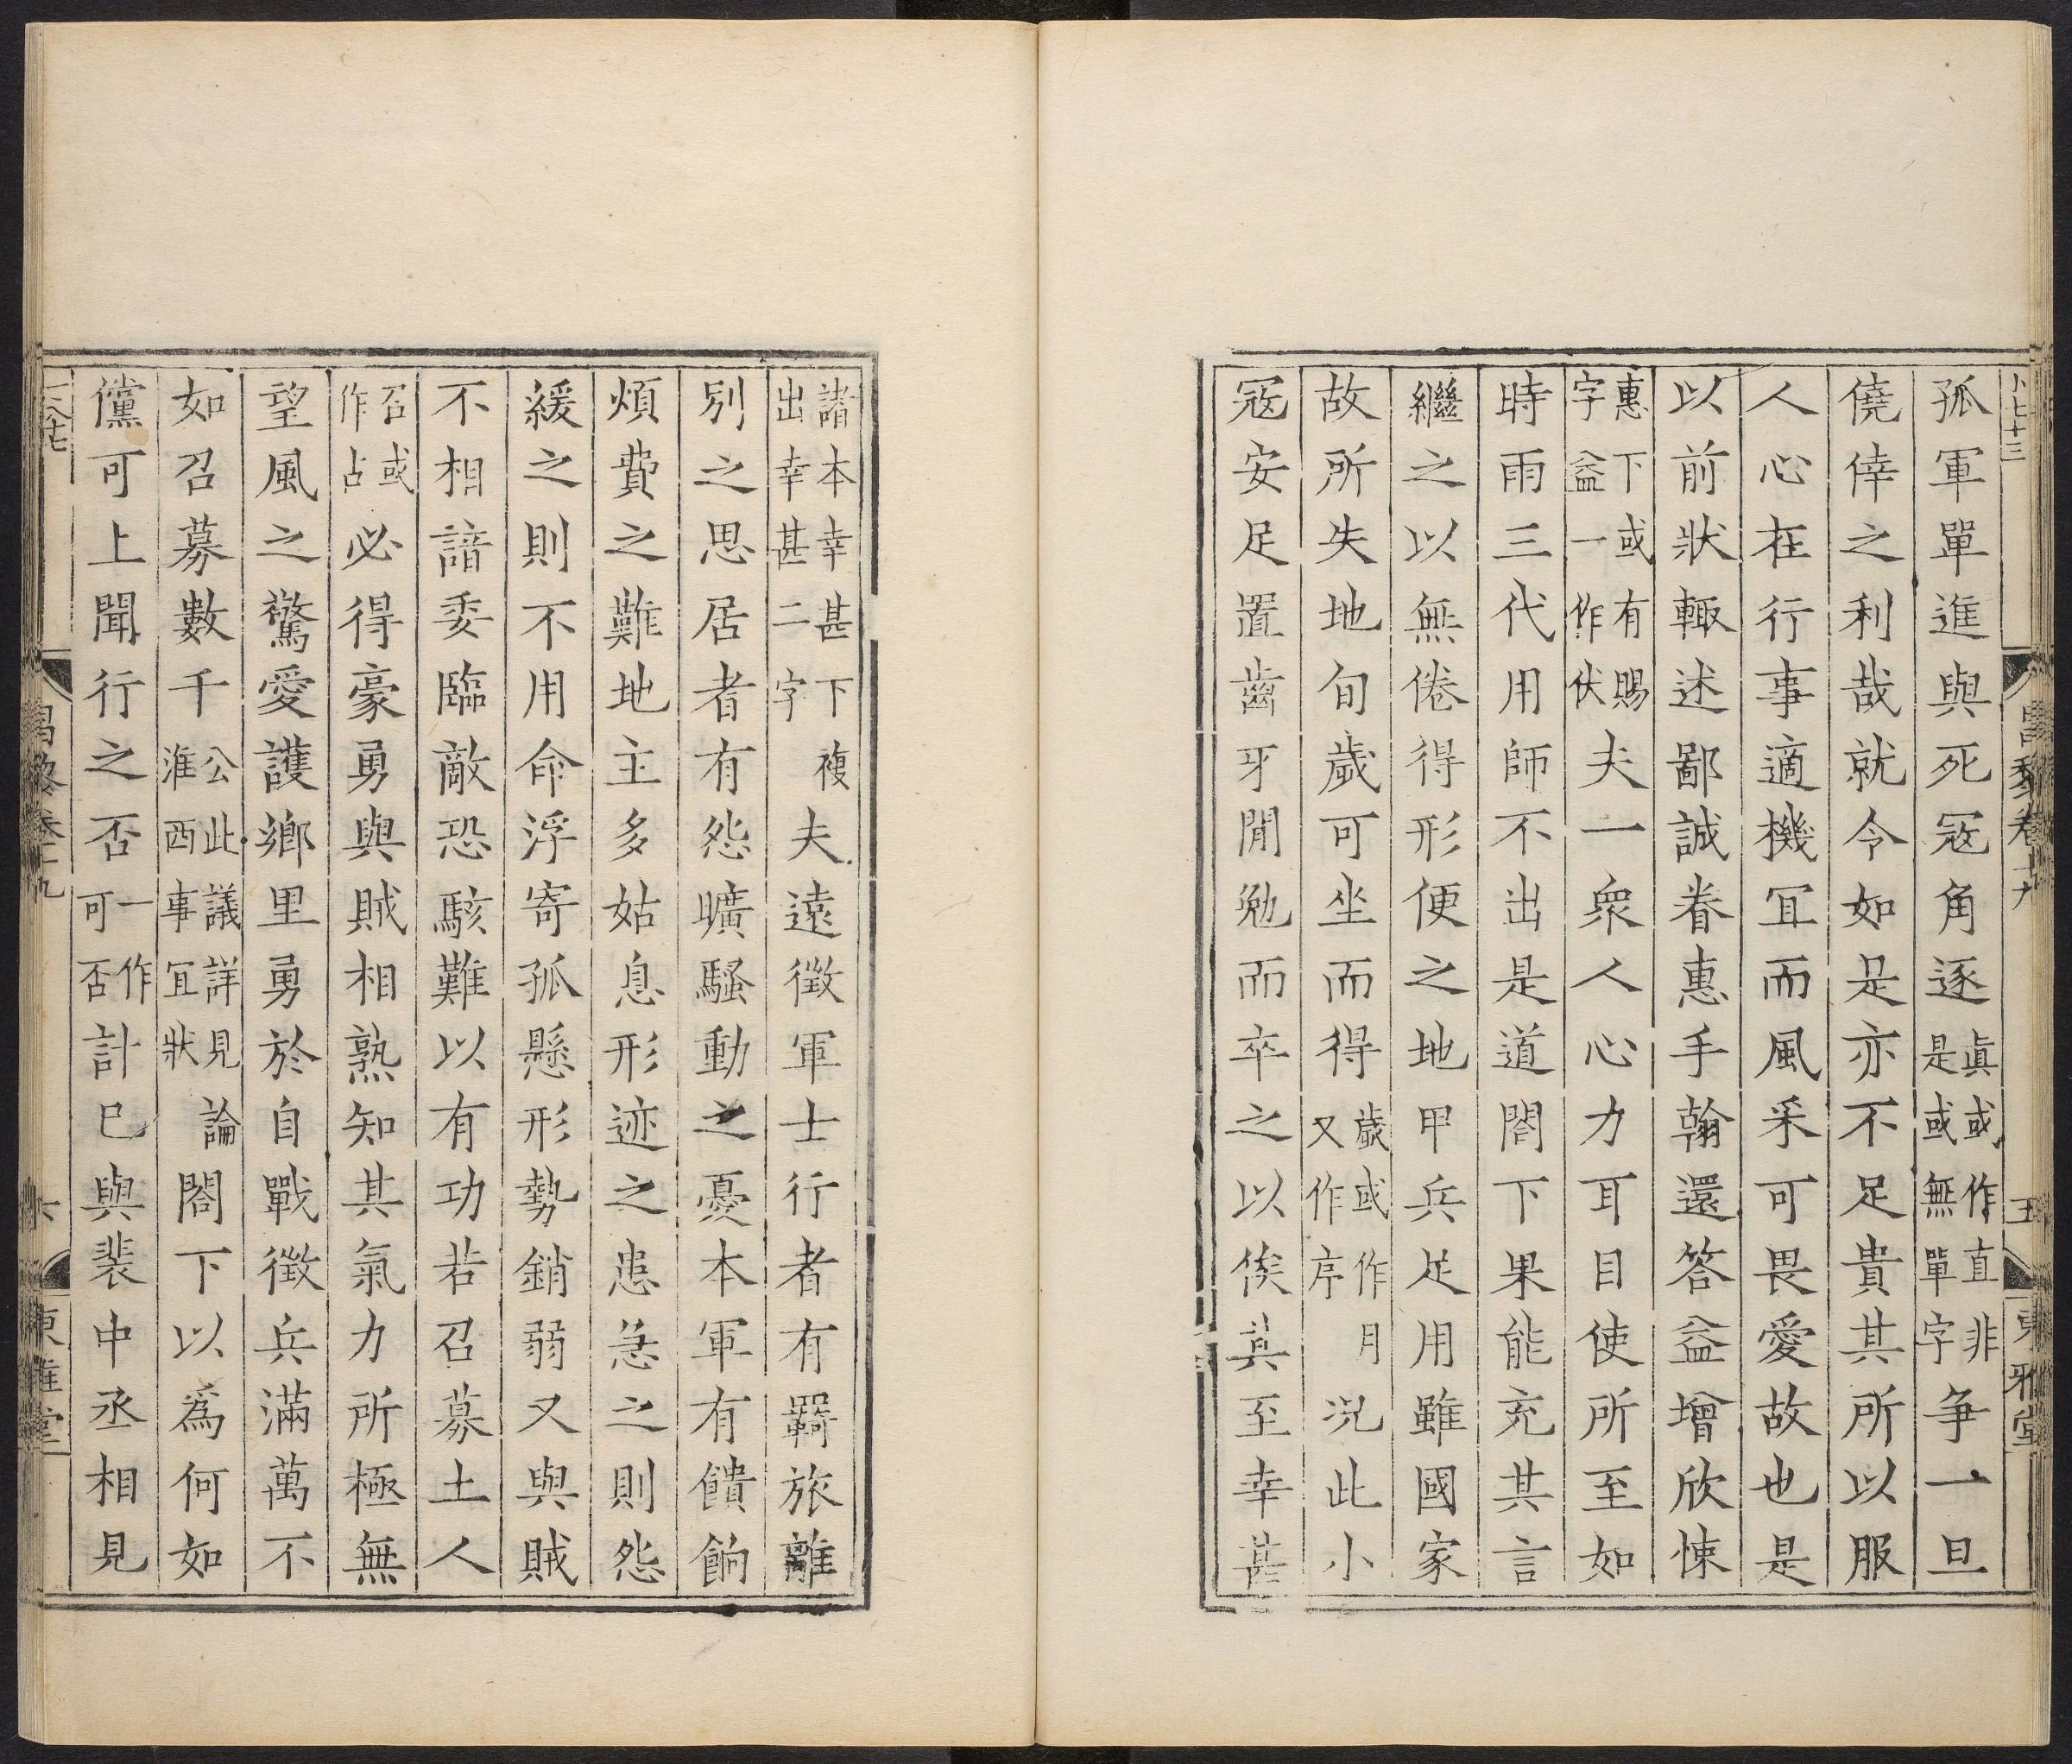 孤軍單進與死寇角逐眞或作直非是或無單字爭一旦
僥倖之利哉就令如是亦不足貴其所以服
人心在行事適機冝而風采可畏愛故也是
以前狀輙述鄙誠眷惠手翰還答益增欣悚
惠下或有賜字益一作伏夫一衆人心力耳目使所至如
時雨三代用師不出是道閤下果能充其言
繼之以無倦得形便之地甲兵足用雖國家
故所失地旬歲可坐而得歲或作月又作序况此小
寇安足置齒牙閒勉而卒之以俟其至幸甚
昌黎卷十九
五
東雅堂
諸本幸甚下複出幸甚二字夫遠徵軍士行者有羇旅離
別之思居者有怨曠騷動之憂本軍有饋餉
煩費之難地主多姑息形迹之患急之則怨
緩之則不用命浮寄孤懸形勢銷弱又與賊
不相諳委臨敵恐駭難以有功若召募土人
召或作占必得豪勇與賊相熟知其氣力所極無
望風之驚愛護鄉里勇於自戰徵兵滿萬不
如召募數千公此議詳見論淮西事冝狀閤下以爲何如
儻可上聞行之否一作可否計巳與裴中丞相見
昌黎卷十九
六
東雅堂